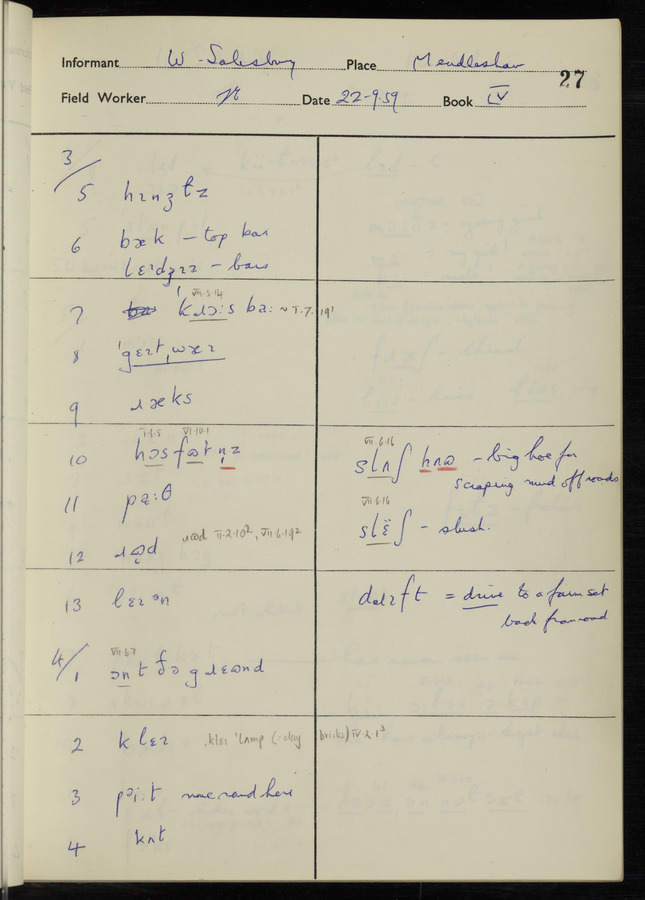 Informant W. Salesbury Place Mendlesham
27
Field Worker Date 22-9-59 Book IV
3/
5 hɪnʒɪz
6 bæk – top bar
lɛɪdʒɪz – bars
VII.5.14
7 kɹɔ:s ba: ~ I.7.19
8 ˈgɛɪtˌwæɪ
9 ɹæks
I.6.5 VI.10.1
10 hɔsfɷtn̩z
VII.6.16
slʌʃ hʌɷ – big hoe for
scraping mud off roads
11 pa:θ
VII.6.16
slɛ̈ʃ – slush.
12 ɹɷd ɹɷd II.2.10², VII.6.19²
13 lɛɪən
dɹɪft = drive to a farm set
back from road
4/
VII.6.7
1 ɔntðəgɹɛɷnd
2 klɛɪ klɛɪ ˈlʌmp (-clay bricks) IV.2.1³
3 pəi:t none round here
4 kʌt